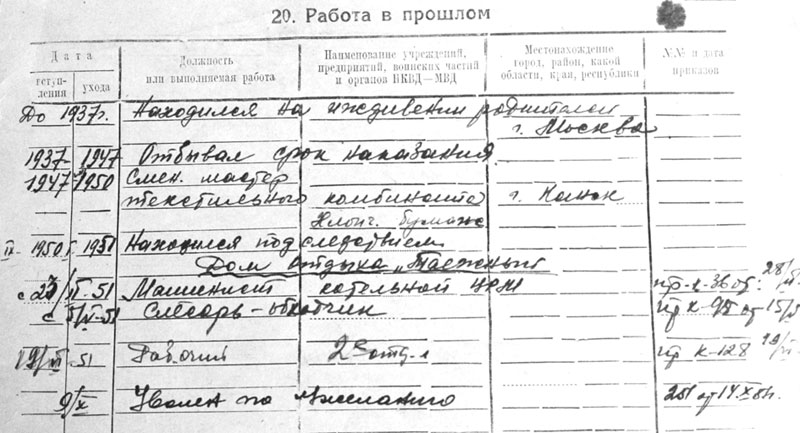 20. Работа в прошлом
Дата
вступления
ухода
Должность или выполняемая работа
Наименование учреждений, предприятий, воинских частей и органов НКВД—МВД
Местонахождение город, район, какой области, края, республики
N.N и дата приказов
До 1937г. Находился на иждивении родителей
г. Москва
1937 1947 Отбывал срок наказания
1947 1950 Смен. мастер
текстильного комбината г. Канск
IX- 1950г 1951 Находился под следствием
Дом отдыха „Таежный"
с 23/ -51 Машинист котельной ЦРМ пр-к-36 от 28/
с 5/ -51 Слесарь- к 95 от 15/
19/ 51 Рабочий 2е отд-л пр к-128 19/
9/X Уволен по желанию 251 от 14 X 51г.